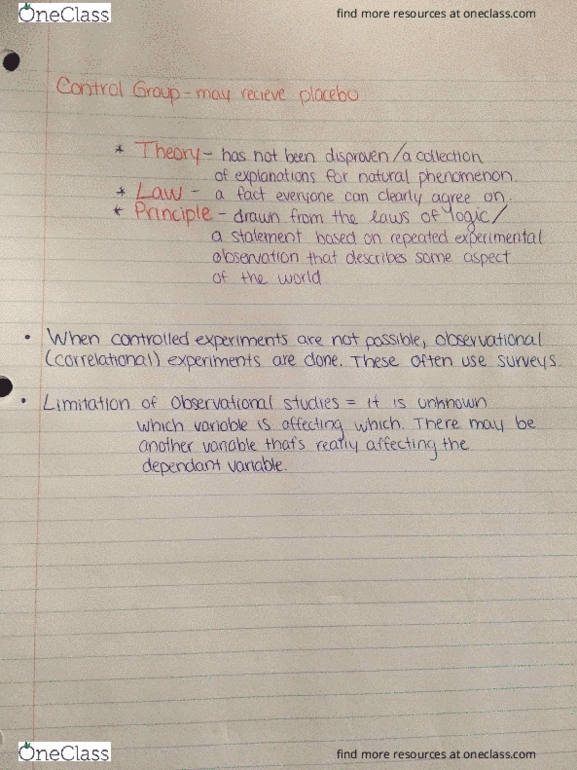 OneClass
find more resources at oneclass.com
Control Group - may recieve placebo
* Theory - has not been disproven/a collection
of explanations for natural phenomenon.
* Law - a fact everyone can clearly agree on.
* Principle - drawn from the laws of logic/
a statement based on repeated experimental
observation that describes some aspect
of the world
• When controlled experiments are not possible, observational
(correlational) experiments are done. These often use surveys.
• Limitation of Observational studies = it is unknown
which variable is affecting which. There may be
another variable that's really affecting the
dependant variable.
OneClass
find more resources at oneclass.com